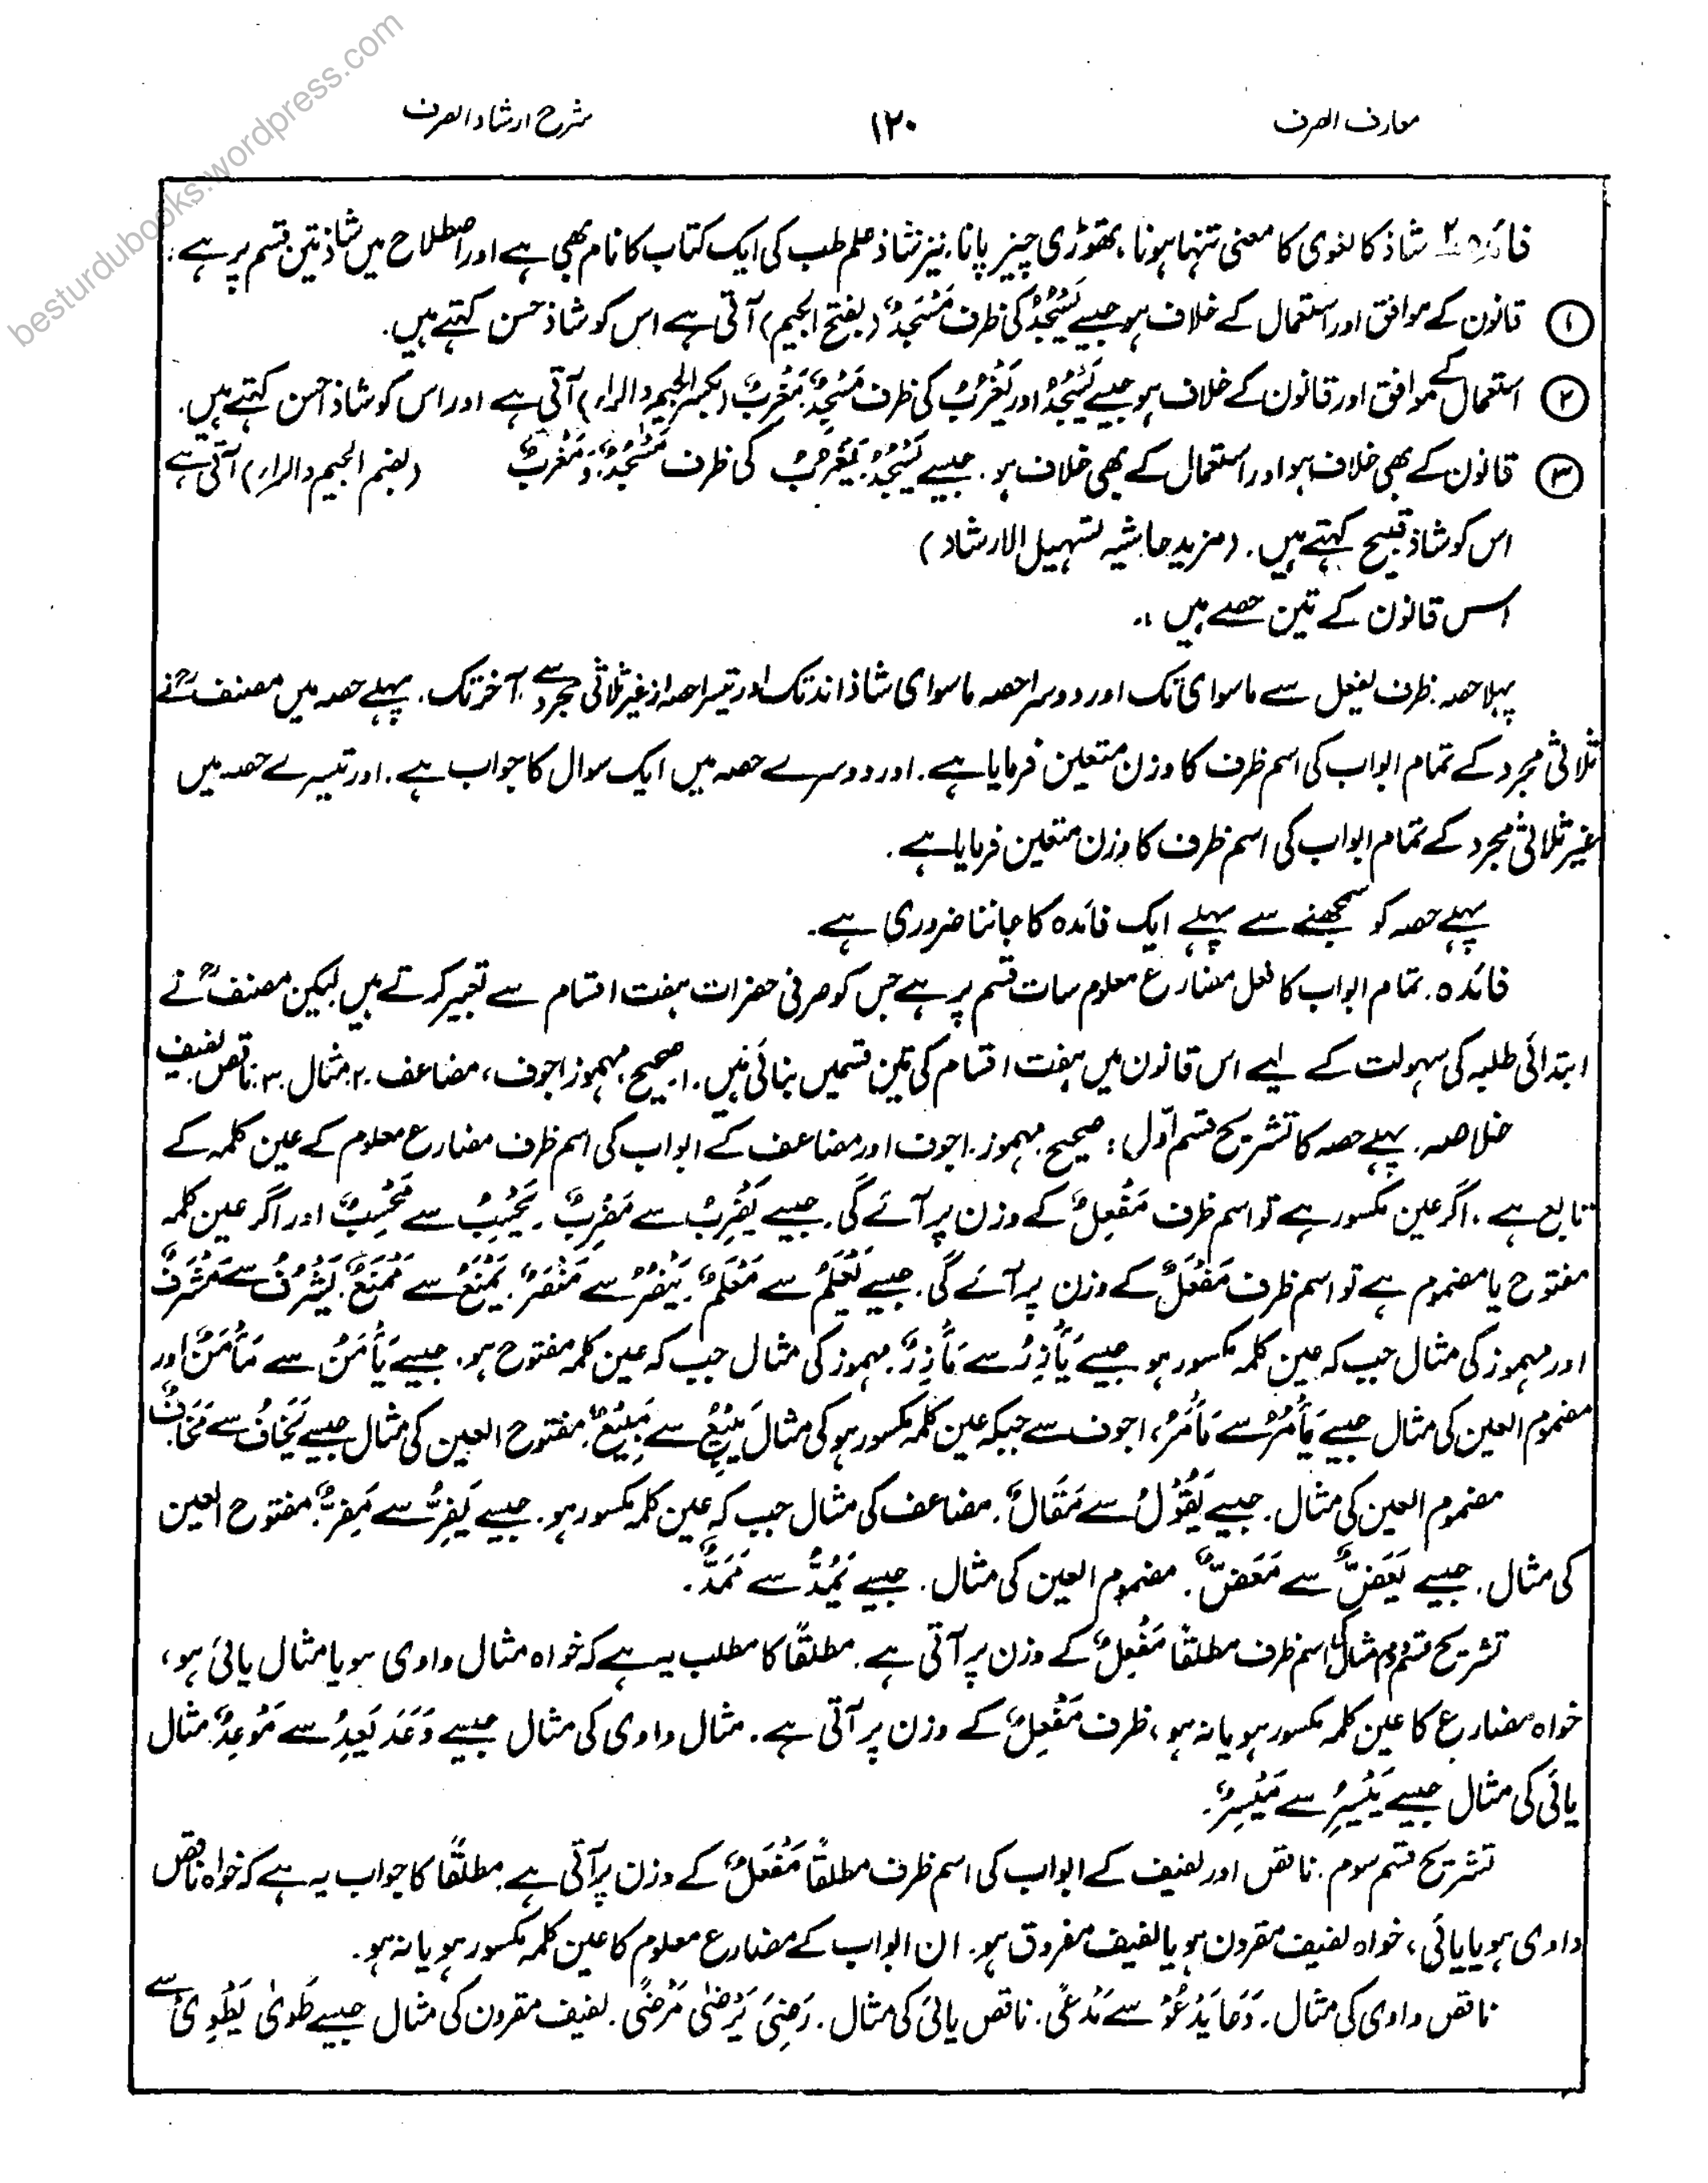 besturdubooks.wordpress.com
معارف الصرف
۱۲۰
شرح ارشاد الصرف
فائدہ ۲ شاذ کا لغوی کا معنی تنہا ہونا، تھوڑی چیز پانا، نیز شاذ علم طب کی ایک کتاب کا نام بھی ہے اور اصطلاح میں شاذ تین قسم پر ہے :
① قانون کے موافق اور استعمال کے خلاف ہو جیسے یَسْجُدُ کی ظرف مَسْجَدٌ (بفتح الجیم) آتی ہے اس کو شاذ حسن کہتے ہیں.
② استعمال کے موافق اور قانون کے خلاف ہو جیسے یَسْجُدُ اور یَغْرُبُ کی ظرف مَسْجِدٌ، مَغْرِبٌ (بکسر الجیم والراء) آتی ہے اور اس کو شاذ احسن کہتے ہیں.
③ قانون کے بھی خلاف ہو اور استعمال کے بھی خلاف ہو. جیسے یَسْجُدُ، یَغْرُبُ کی ظرف مَسْجُدٌ، وَمَغْرُبٌ (بضم الجیم والراء) آتی ہے
اس کو شاذ قبیح کہتے ہیں. (مزید حاشیہ تسہیل الارشاد)
اس قانون کے تین حصے ہیں :.
پہلا حصہ. ظرف یفعل سے ماسوای تک اور دوسرا حصہ ماسوای شاذ اند تک اور تیسرا حصہ از غیر ثلاثی مجرد سے آخر تک. پہلے حصہ میں مصنفؒ نے
ثلاثی مجرد کے تمام ابواب کی اسم ظرف کا وزن متعین فرمایا ہے. اور دوسرے حصہ میں ایک سوال کا جواب ہے. اور تیسرے حصہ میں
غیر ثلاثی مجرد کے تمام ابواب کی اسم ظرف کا وزن متعین فرمایا ہے.
پہلے حصہ کو سمجھنے سے پہلے ایک فائدہ کا جاننا ضروری ہے.
فائدہ. تمام ابواب کا فعل مضارع معلوم سات قسم پر ہے جس کو صرفی حضرات ہفت اقسام سے تعبیر کرتے ہیں لیکن مصنفؒ نے
ابتدائی طلبہ کی سہولت کے لیے اس قانون میں ہفت اقسام کی تین قسمیں بنائی ہیں. ۱. صحیح مہموز اجوف، مضاعف ۲. مثال ۳. ناقص، لفیف
خلاصہ. پہلے حصہ کا تشریح قسم اوّل : صحیح. مہموز. اجوف اور مضاعف کے ابواب کی اسم ظرف مضارع معلوم کے عین کلمہ کے
تابع ہے. اگر عین مکسور ہے تو اسم ظرف مَفْعِلٌ کے وزن پر آئے گی. جیسے یَضْرِبُ سے مَضْرِبٌ. یَحْسِبُ سے مَحْسِبٌ اور اگر عین کلمہ
مفتوح یا مضموم ہے تو اسم ظرف مَفْعَلٌ کے وزن پر آئے گی. جیسے یَعْلَمُ سے مَعْلَمٌ. یَنْصُرُ سے مَنْصَرٌ. یَمْنَعُ سے مَمْنَعٌ. یَشْرُفُ سے مَشْرَفٌ
اور مہموز کی مثال جب کہ عین کلمہ مکسور ہو جیسے یَأْزِرُ سے مَأْزِرٌ. مہموز کی مثال جب کہ عین کلمہ مفتوح ہو. جیسے یَأْمَنُ سے مَأْمَنٌ اور
مضموم العین کی مثال جیسے یَأْمُرُ سے مَأْمَرٌ، اجوف سے جبکہ عین کلمہ مکسور ہو کی مثال یَبِیْعُ سے مَبِیْعٌ. مفتوح العین کی مثال جیسے یَخَافُ سے مَخَافٌ
مضموم العین کی مثال. جیسے یَقُوْلُ سے مَقَالٌ. مضاعف کی مثال جب کہ عین کلمہ مکسور ہو. جیسے یَفِرُّ سے مَفِرٌّ. مفتوح العین
کی مثال. جیسے یَعَضُّ سے مَعَضٌّ. مضموم العین کی مثال. جیسے یَمُدُّ سے مَمَدٌّ.
تشریح قسم دوم مثال کی اسم ظرف مطلقًا مَفْعِلٌ کے وزن پر آتی ہے. مطلقًا کا مطلب یہ ہے کہ خواہ مثال واوی ہو یا مثال یائی ہو،
خواہ مضارع کا عین کلمہ مکسور ہو یا نہ ہو، ظرف مَفْعِلٌ کے وزن پر آتی ہے. مثال واوی کی مثال جیسے وَعَدَ یَعِدُ سے مَوْعِدٌ. مثال
یائی کی مثال جیسے یَیْسِرُ سے مَیْسِرٌ.
تشریح قسم سوم. ناقص اور لفیف کے ابواب کی اسم ظرف مطلقًا مَفْعَلٌ کے وزن پر آتی ہے. مطلقًا کا جواب یہ ہے کہ خواہ ناقص
واوی ہو یا یائی، خواہ لفیف مقرون ہو یا لفیف مفروق ہو. ان ابواب کے مضارع معلوم کا عین کلمہ مکسور ہو یا نہ ہو.
ناقص واوی کی مثال. دَعَا یَدْعُوْ سے مَدْعًی. ناقص یائی کی مثال. رَضِیَ یَرْضٰی مَرْضًی. لفیف مقرون کی مثال جیسے طَوٰی یَطْوِیْ سے